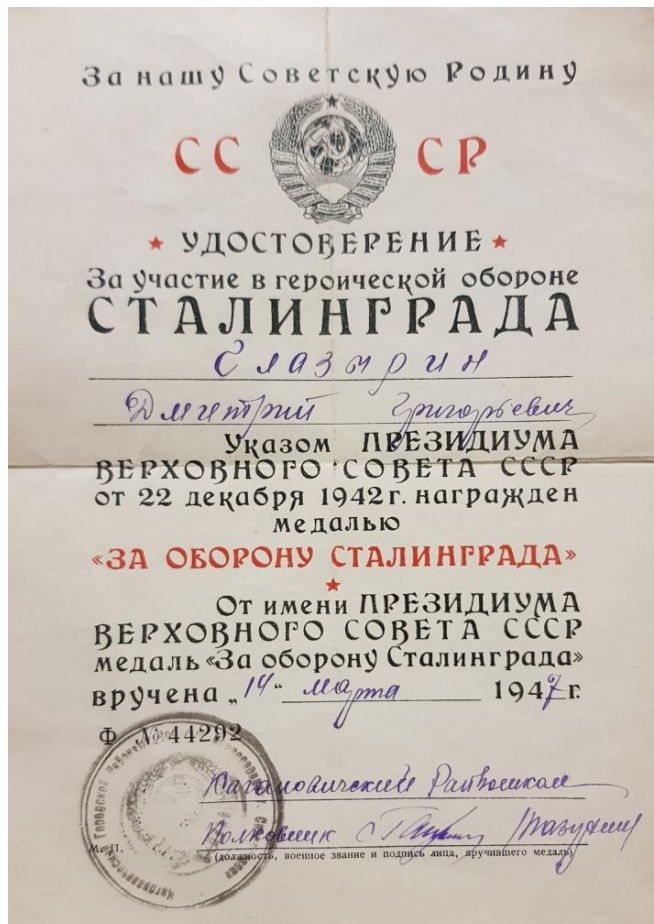 За нашу Советскую Родину
СС СР
УДОСТОВЕРЕНИЕ
За участие в героической обороне
СТАЛИНГРАДА
Глазырин
Дмитрий Григорьевич
Указом ПРЕЗИДИУМА
ВЕРХОВНОГО СОВЕТА СССР
от 22 декабря 1942 г. награжден
медалью
«ЗА ОБОРОНУ СТАЛИНГРАДА»
От имени ПРЕЗИДИУМА
ВЕРХОВНОГО СОВЕТА СССР
медаль «За оборону Сталинграда»
вручена „14“ марта 1947 г.
Ф № 44292
Кагановический Райвоенком
Полковник
М. П.
(должность, военное звание и подпись лица, вручившего медаль)